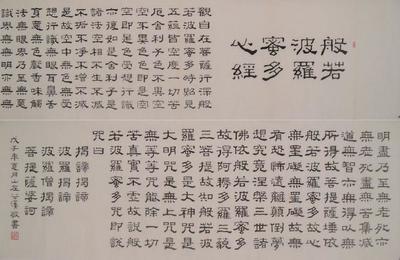 般若
波羅
蜜多
心經
觀自在菩薩行深般
若波羅蜜多時照見
五蘊皆空度一切苦
厄舍利子色不異空
空不異色色即是空
空即是色受想行識
亦復如是舍利子是
諸法空相不生不滅
不垢不淨不增不減
是故空中無色無受
想行識無眼耳鼻舌
身意無色聲香味觸
法無眼界乃至無意
識界無無明亦無無
明盡乃至無老死亦
無老死盡無苦集滅
道無智亦無得以無
所得故菩提薩埵依
般若波羅蜜多故心
無罣礙無罣礙故無
有恐怖遠離顛倒夢
想究竟涅槃三世諸
佛依般若波羅蜜多
故得阿耨多羅三藐
三菩提故知般若波
羅蜜多是大神咒是
大明咒是無上咒是
無等等咒能除一切
苦真實不虛故說般
若波羅蜜多咒即說
咒曰
揭諦揭諦
波羅揭諦
波羅僧揭諦
菩提薩婆訶
戊子年夏月敬書